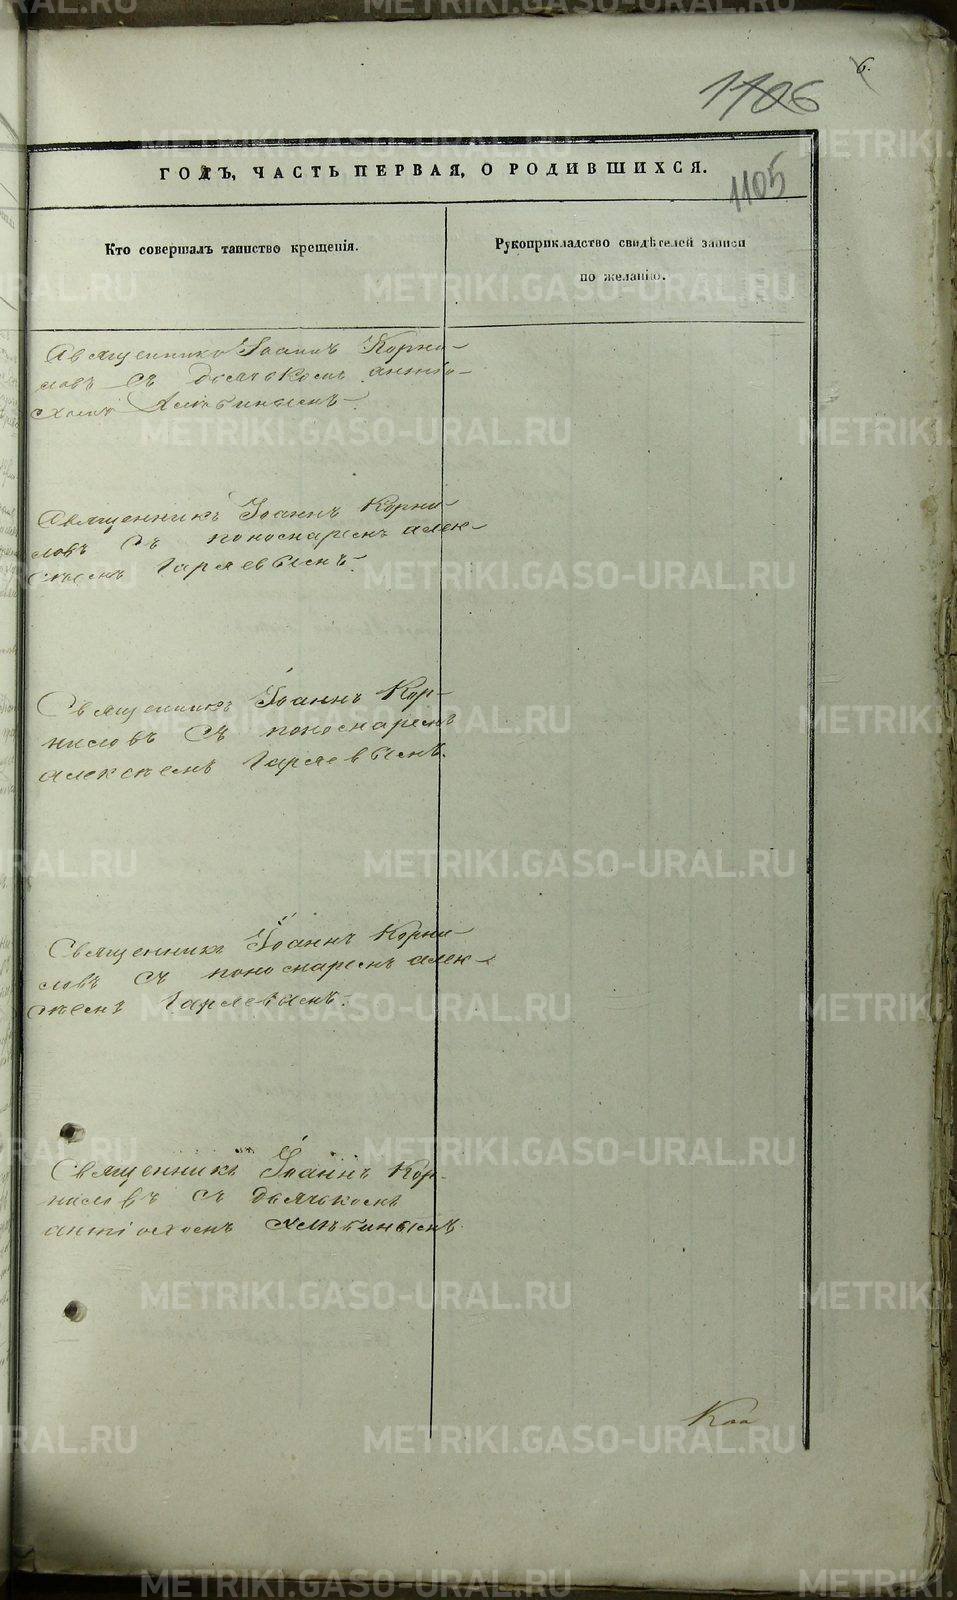 6.
1106
ГОДЪ, ЧАСТЬ ПЕРВАЯ, О РОДИВШИХСЯ.
1105
Кто совершалъ таинство крещенія.
Рукоприкладство свидѣтелей записи
по желанію.
Священникъ Іоаннъ Корни-
ловъ съ дьячкомъ Антіо-
хомъ Хлѣбинымъ
Священникъ Іоаннъ Корни-
ловъ съ пономаремъ Алек-
сѣемъ Гаряевымъ
Священникъ Іоаннъ Кор-
ниловъ съ пономаремъ
Алексѣемъ Гаряевымъ.
Священникъ Іоаннъ Корни-
ловъ съ пономаремъ Алек-
сѣемъ Гаряевымъ.
Священникъ Іоаннъ Кор-
ниловъ съ дьячькомъ
Антіохомъ Хлѣбинымъ.
METRIKI.GASO-URAL.RU